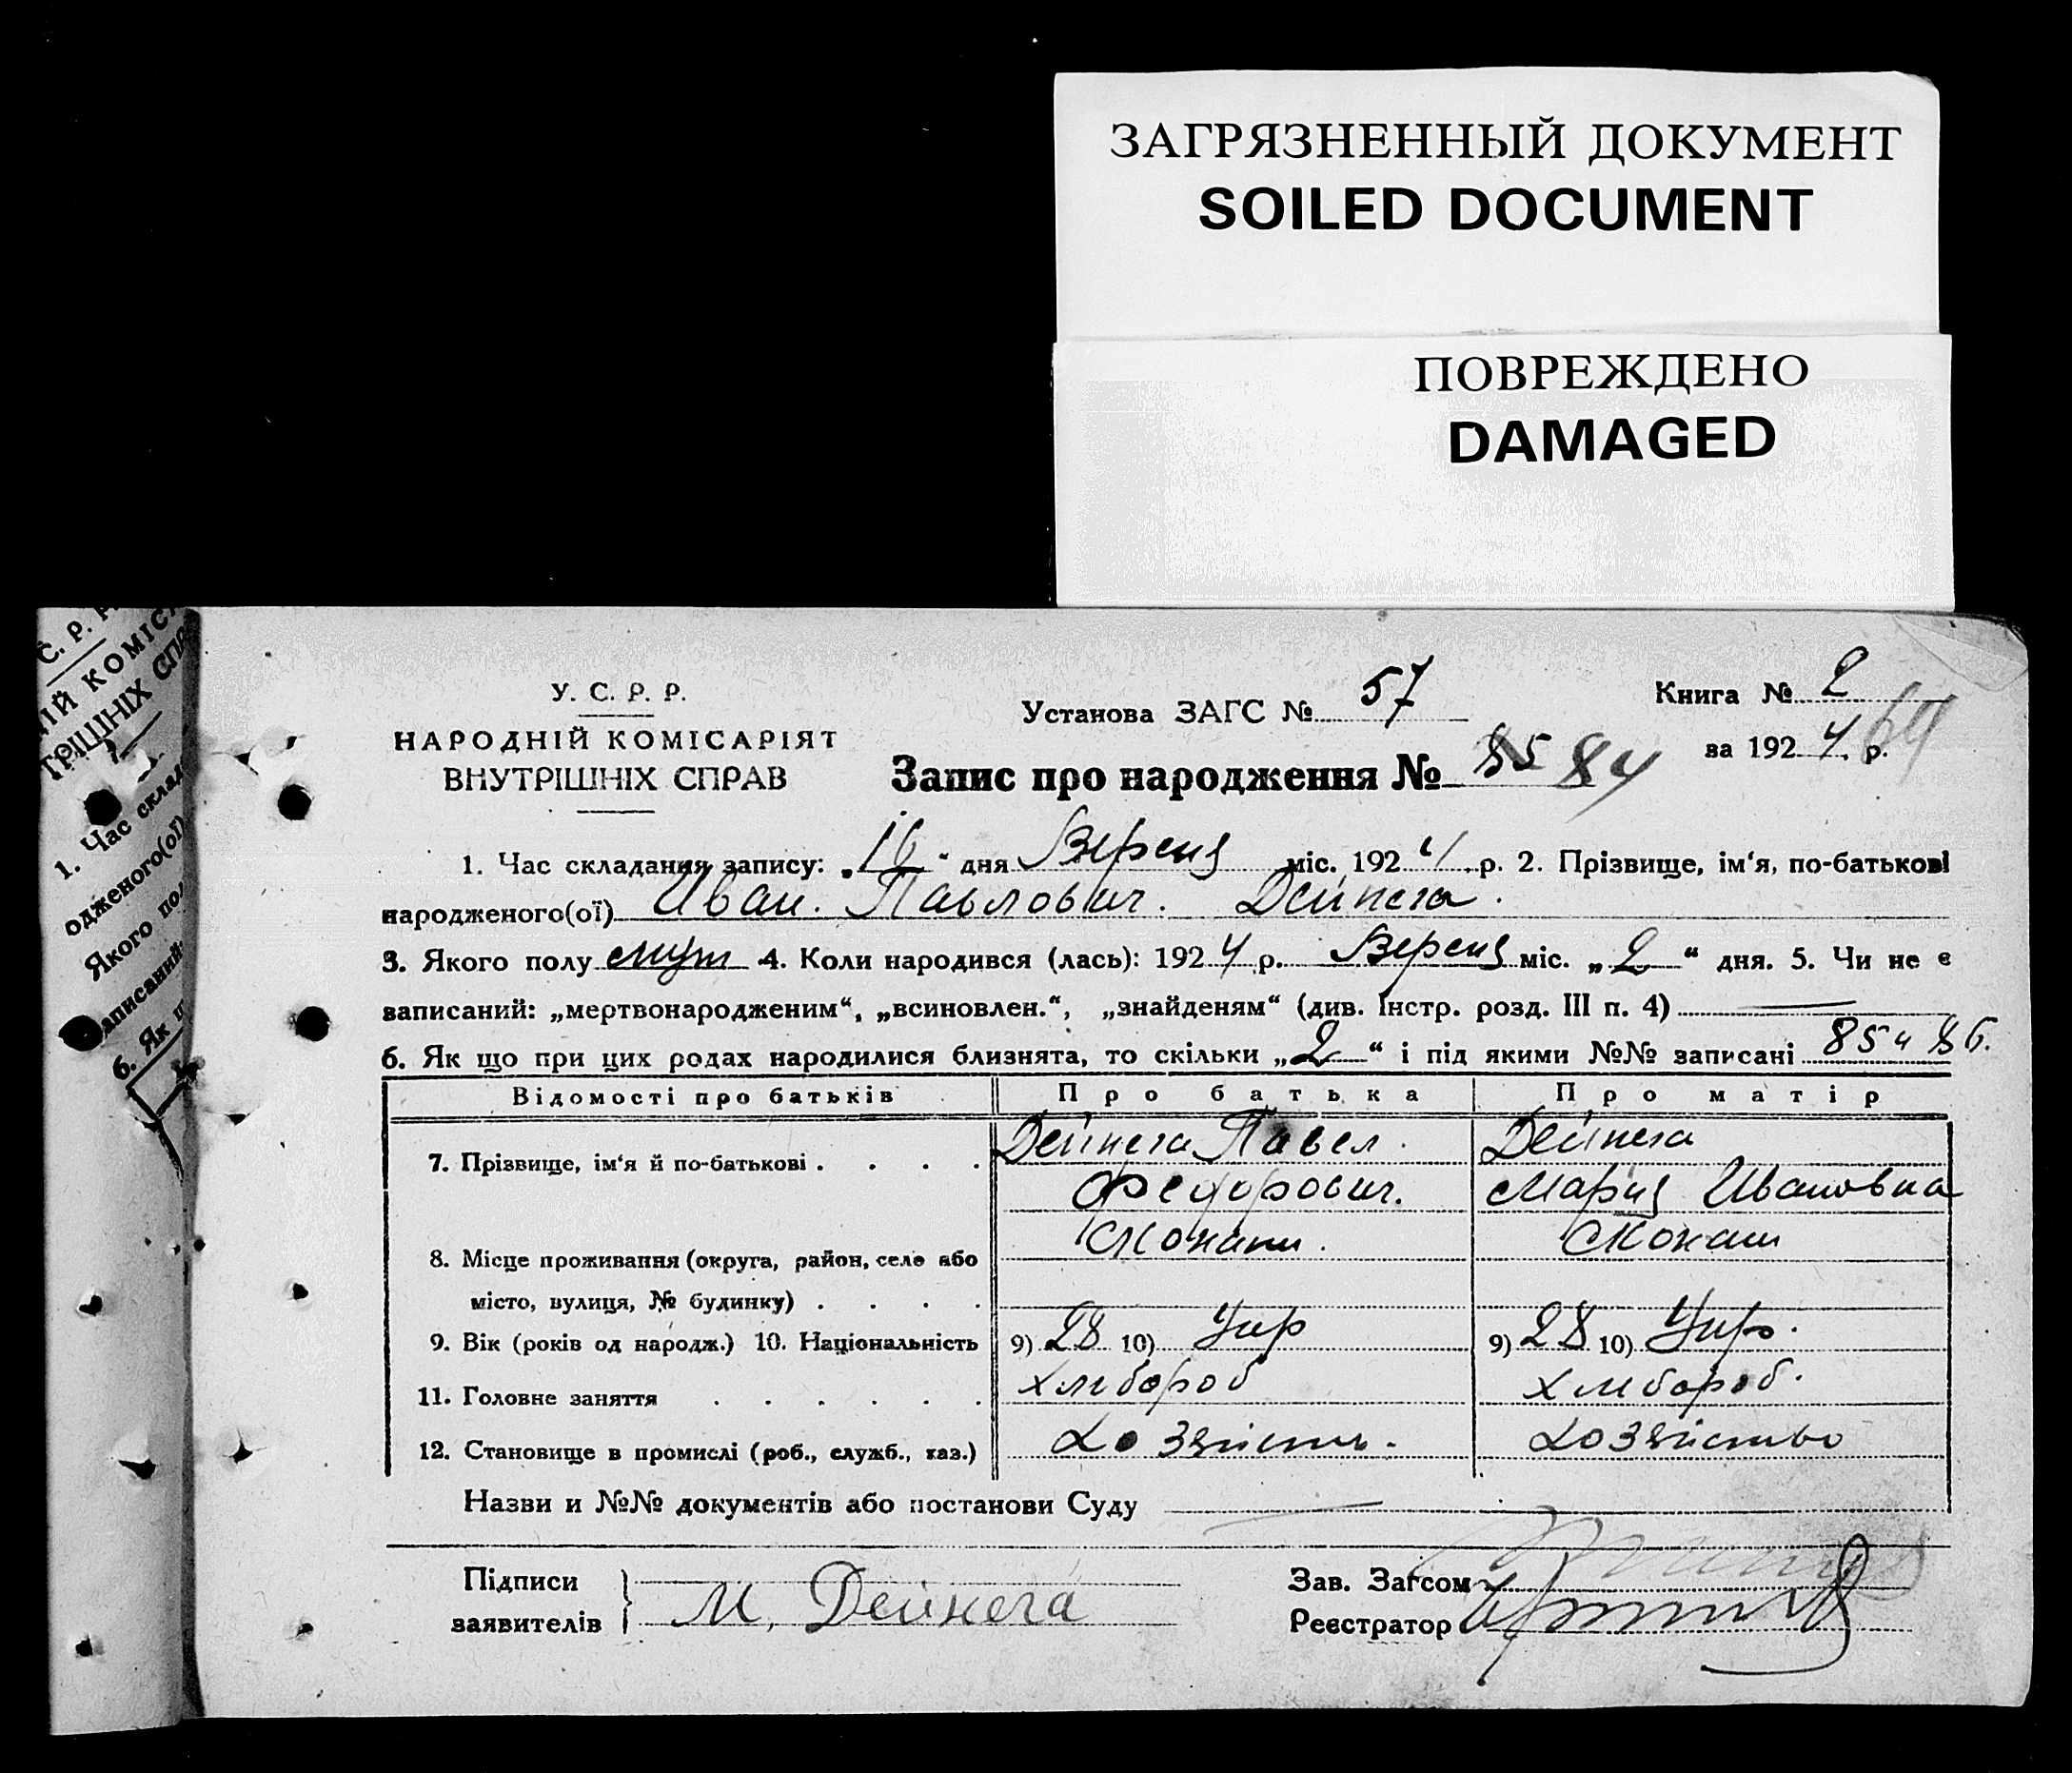 ЗАГРЯЗНЕННЫЙ ДОКУМЕНТ
SOILED DOCUMENT
ПОВРЕЖДЕНО
DAMAGED
У. С. Р. Р.
НАРОДНІЙ КОМІСАРІЯТ
ВНУТРІШНІХ СПРАВ
Установа ЗАГС № 57
Книга № 2
за 1924 р. 64
Запис про народження № 85 84
1. Час складання запису: „16“ дня Верени міс. 1924 р. 2. Прізвище, ім‘я, по-батькові
народженого(ої) Иван. Павлович. Дейнега.
3. Якого полу муж 4. Коли народився (лась): 1924 р. Верени міс. „2“ дня. 5. Чи не є
записаний: „мертвонародженим“, „всиновлен.“, „знайденям“ (див. Інстр. розд. III п. 4)
6. Як що при цих родах народилися близнята, то скільки „2“ і під якими №№ записані 85 и 86.
Відомості про батьків Про батька Про матір
7. Прізвище, ім‘я й по-батькові Дейнега Павел. Дейнега
Федорович. Мария Ивановна
8. Місце проживання (округа, район, село або
місто, вулиця, № будинку)
9. Вік (років од народж.) 10. Національність 9) 28 10) Укр 9) 28 10) Укр.
11. Головне заняття хлибороб хлибороб.
12. Становище в промислі (роб., служб., хаз.) хозяйств. хозяйство
Назви и №№ документів або постанови Суду
Підписи
заявителів М. Дейнега
Зав. Загсом
Реєстратор
С. Р. Р.
ІЙ КОМІС
ТРІШНІХ СПР
1. Час склад
одженого(ої)
Якого пол
аписаний:
6. Як щ